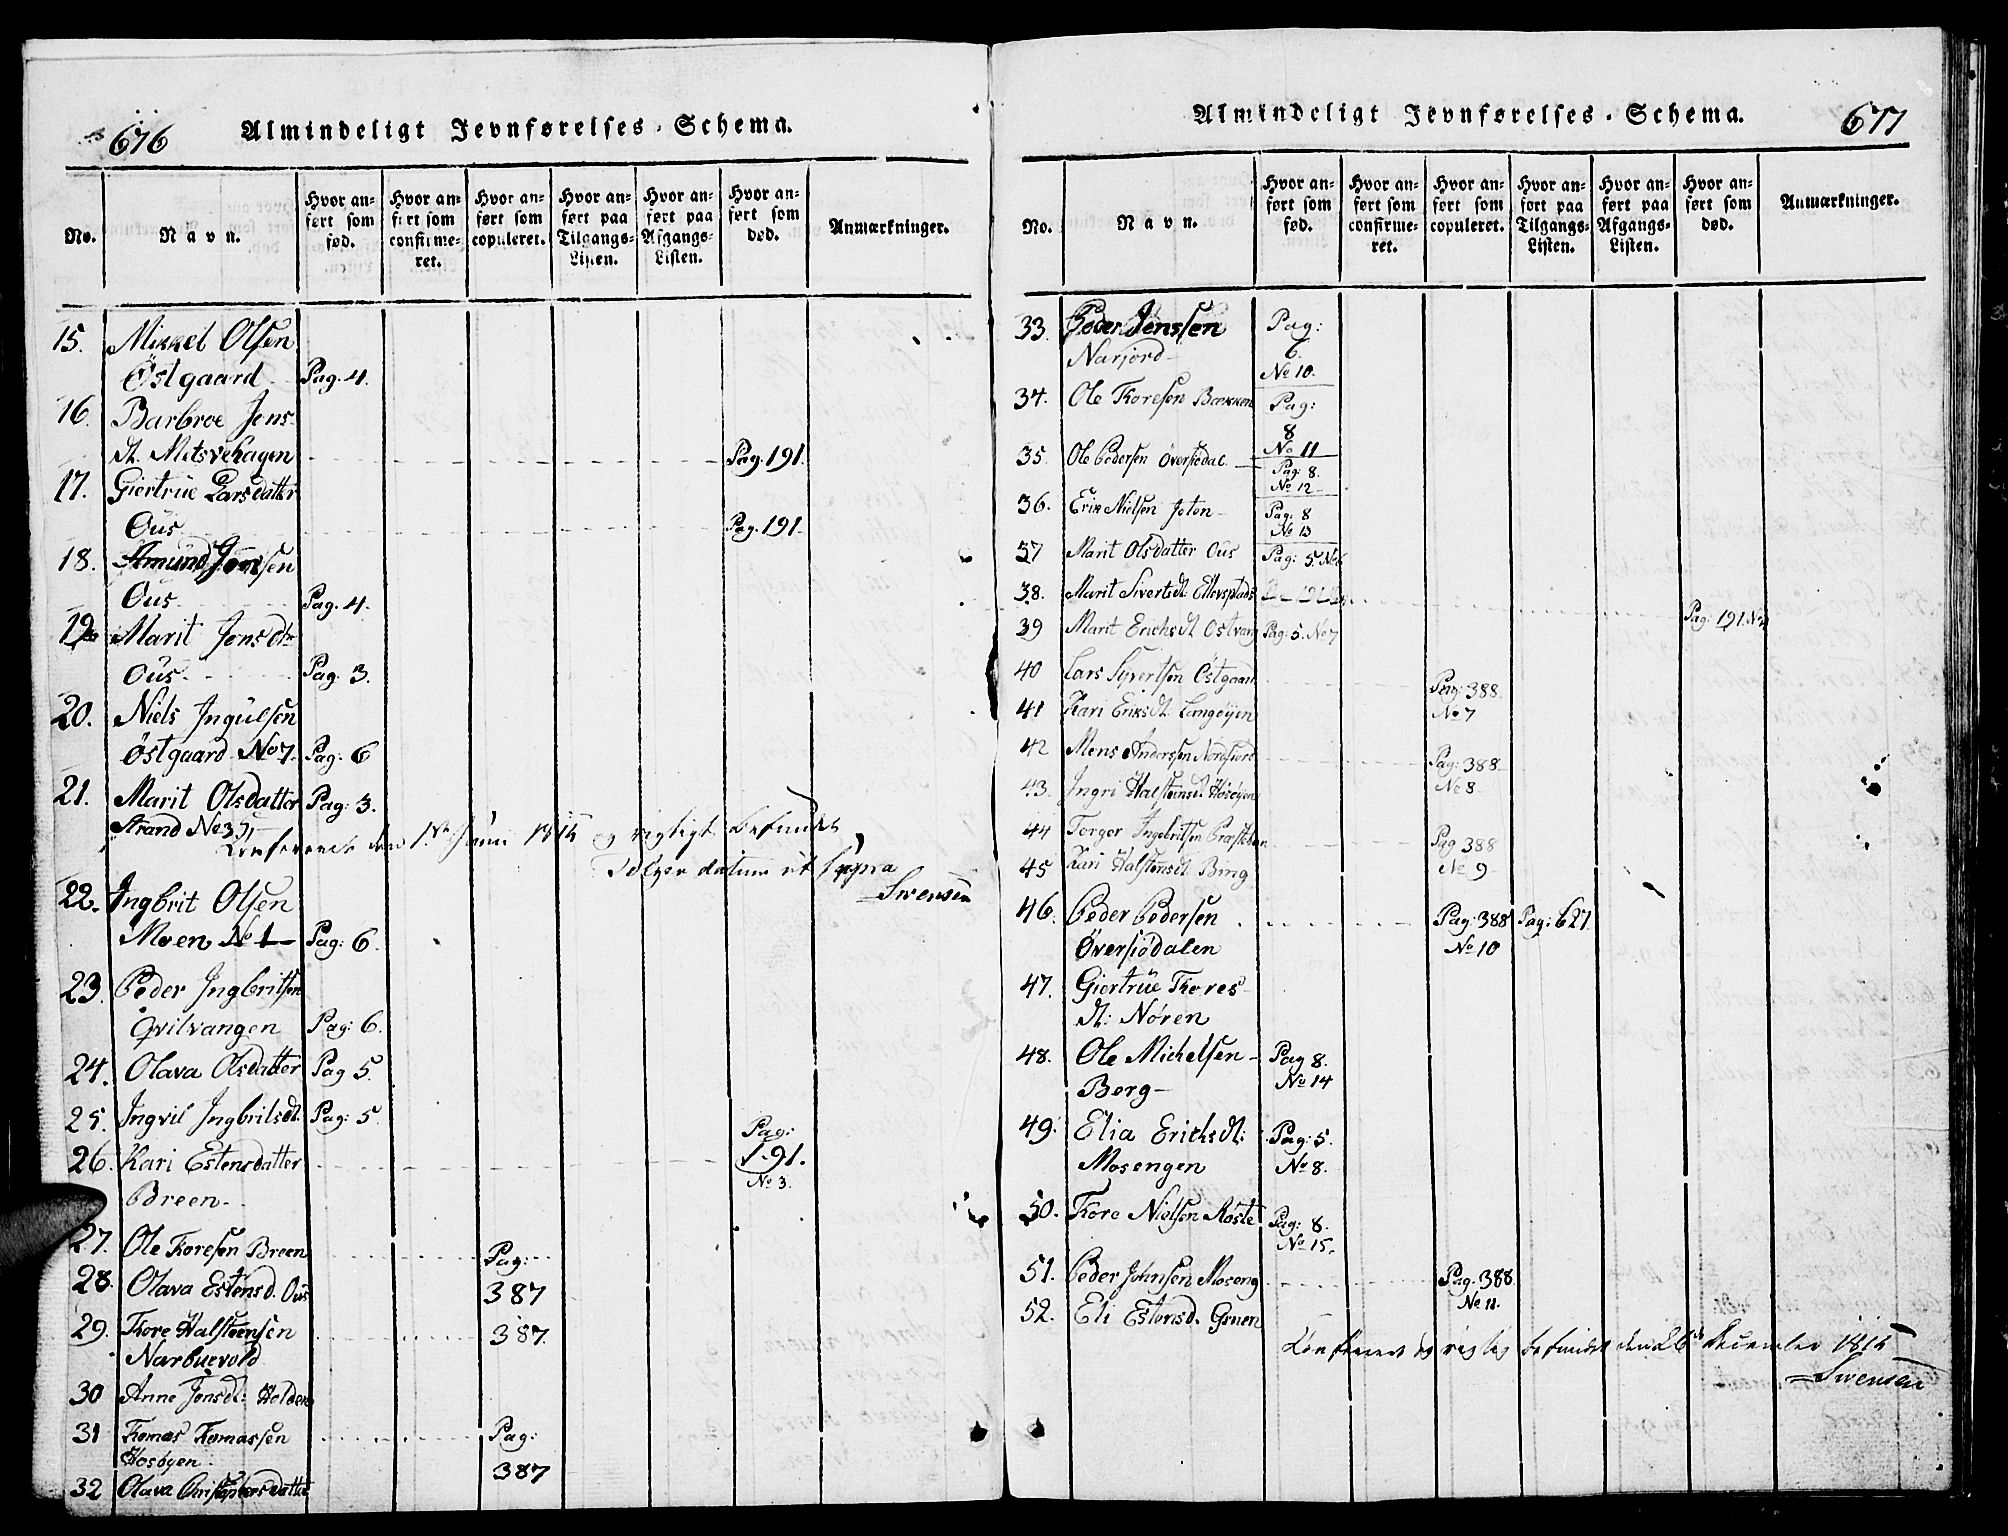 676 Almindeligt Jevnførelses-Schema.
No. Navn. Hvor anført som fød. Hvor anført som confirmeret. Hvor anført som copuleret. Hvor anført paa Tilgangs-Listen. Hvor anført paa Afgangs-Listen. Hvor anført som død. Anmærkninger.
15. Mikkel Olsen
Östgaard Pag. 4.
16. Barbroe Jens-
dt. Metsvehagen Pag. 191.
17. Giertrue Larsdatter
Ous Pag. 191.
18. Amund Jonsen
Ous Pag. 4.
19. Marit Jensdtr
Ous Pag. 3.
20. Niels Ingulsen
Östgaard No 7. Pag. 6
21. Marit Olsdatter Pag: 3.
Strand No 35
Confereret den 1ste Juni 1815 og rigtigt befundet
datum ut supra
Swensen
22. Ingbrit Olsen
Moen No 1 Pag: 6.
23. Peder Ingbritsen
Qvilvangen Pag: 6.
24. Olava Olsdatter Pag 5.
25. Ingvil Ingbritsdt. Pag: 5
26. Kari Estensdatter Pag: 191. No 3.
Breen
27. Ole Toresen Breen Pag:
28. Olava Estensd. Ous 387
29. Tore Halsteensen 387.
Narbuevold
30 Anne Jensdt: Holden
31 Tomas Tomassen Pag:
Hosöyen 387
32 Olava Christophersdatter
677 Almindeligt Jevnførelses-Schema.
No. Navn. Hvor anført som fød. Hvor anført som confirmeret. Hvor anført som copuleret. Hvor anført paa Tilgangs-Listen. Hvor anført paa Afgangs-Listen. Hvor anført som død. Anmærkninger.
33. Peder Jenssen Pag: 6.
Narjord No 10.
34. Ole Toresen Bækken Pag: 8 No 11
35 Ole Pedersen Översiödal Pag: 8. No 12
36. Erik Nielsen Joton Pag: 8 No 13
37 Marit Olsdatter Ous Pag: 5. No 6
38. Marit Sivertsdt: Ellevsplads Pag: 191. No 4
39 Marit Erichsdt Ostvang Pag: 5. No 7
40 Lars Syvertsen Östgaard Pag: 388.
41 Kari Eriksdt. Langöyen No 7
42 Mons Anderssen Nordfiord Pag: 388
43. Ingri Halsteinsdt. Hosöyen No 8
44 Torger Ingebritsen Præstebn Pag 388
45 Kari Halstensdt Bing No 9
46. Peder Pedersen Pag: 388 Pag: 627
Översiödalen No 10
47. Giertrue Tores-
dt: Nören
48. Ole Michelsen Pag 8.
Berg No 14
49. Elia Erichsdt: Pag: 5.
Mosengen No 8.
50. Tore Nielsen Röste Pag: 8. No 15.
51. Peder Johnsen Moseng Pag. 388
52. Eli Estensd. Gruen No 11.
Confereret og rigtig befundet den 26de December 1815
Swensen